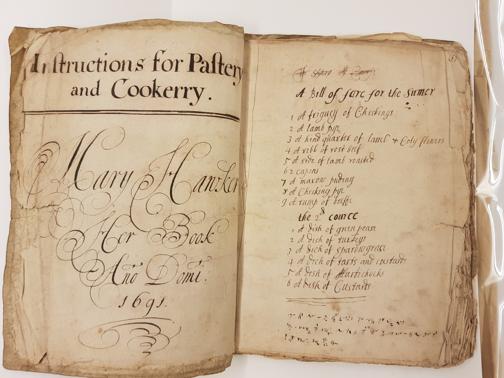 Instructions for Pastery
and Cookerry.
Mary Hantker
Her Book
Ano Domi.
1691.
A Bill of fare for the sumer
1 A frigucy of Chickings
2 A lamb pye
3 A hind quarter of lamb & Coly flowers
4 A ribb of rost beef
5 A side of lamb roasted
6 2 capins
7 A marow puding
8 A Chicking pye
9 A rump of beiffe
the 2d cource
1 A dish of green pease
2 A dish of turkeys
3 A dish of sparowgrass
4 A dish of tarts and custards
5 A dish of Hartichocks
6 A dish of Custards